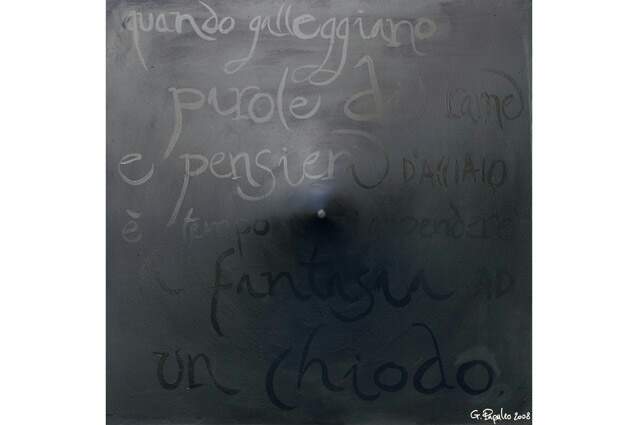 quando galleggiano
parole di rame
e pensieri D'ACCIAIO
è tempo appendere
fantasia AD
un chiodo.
G. Papaleo 2008